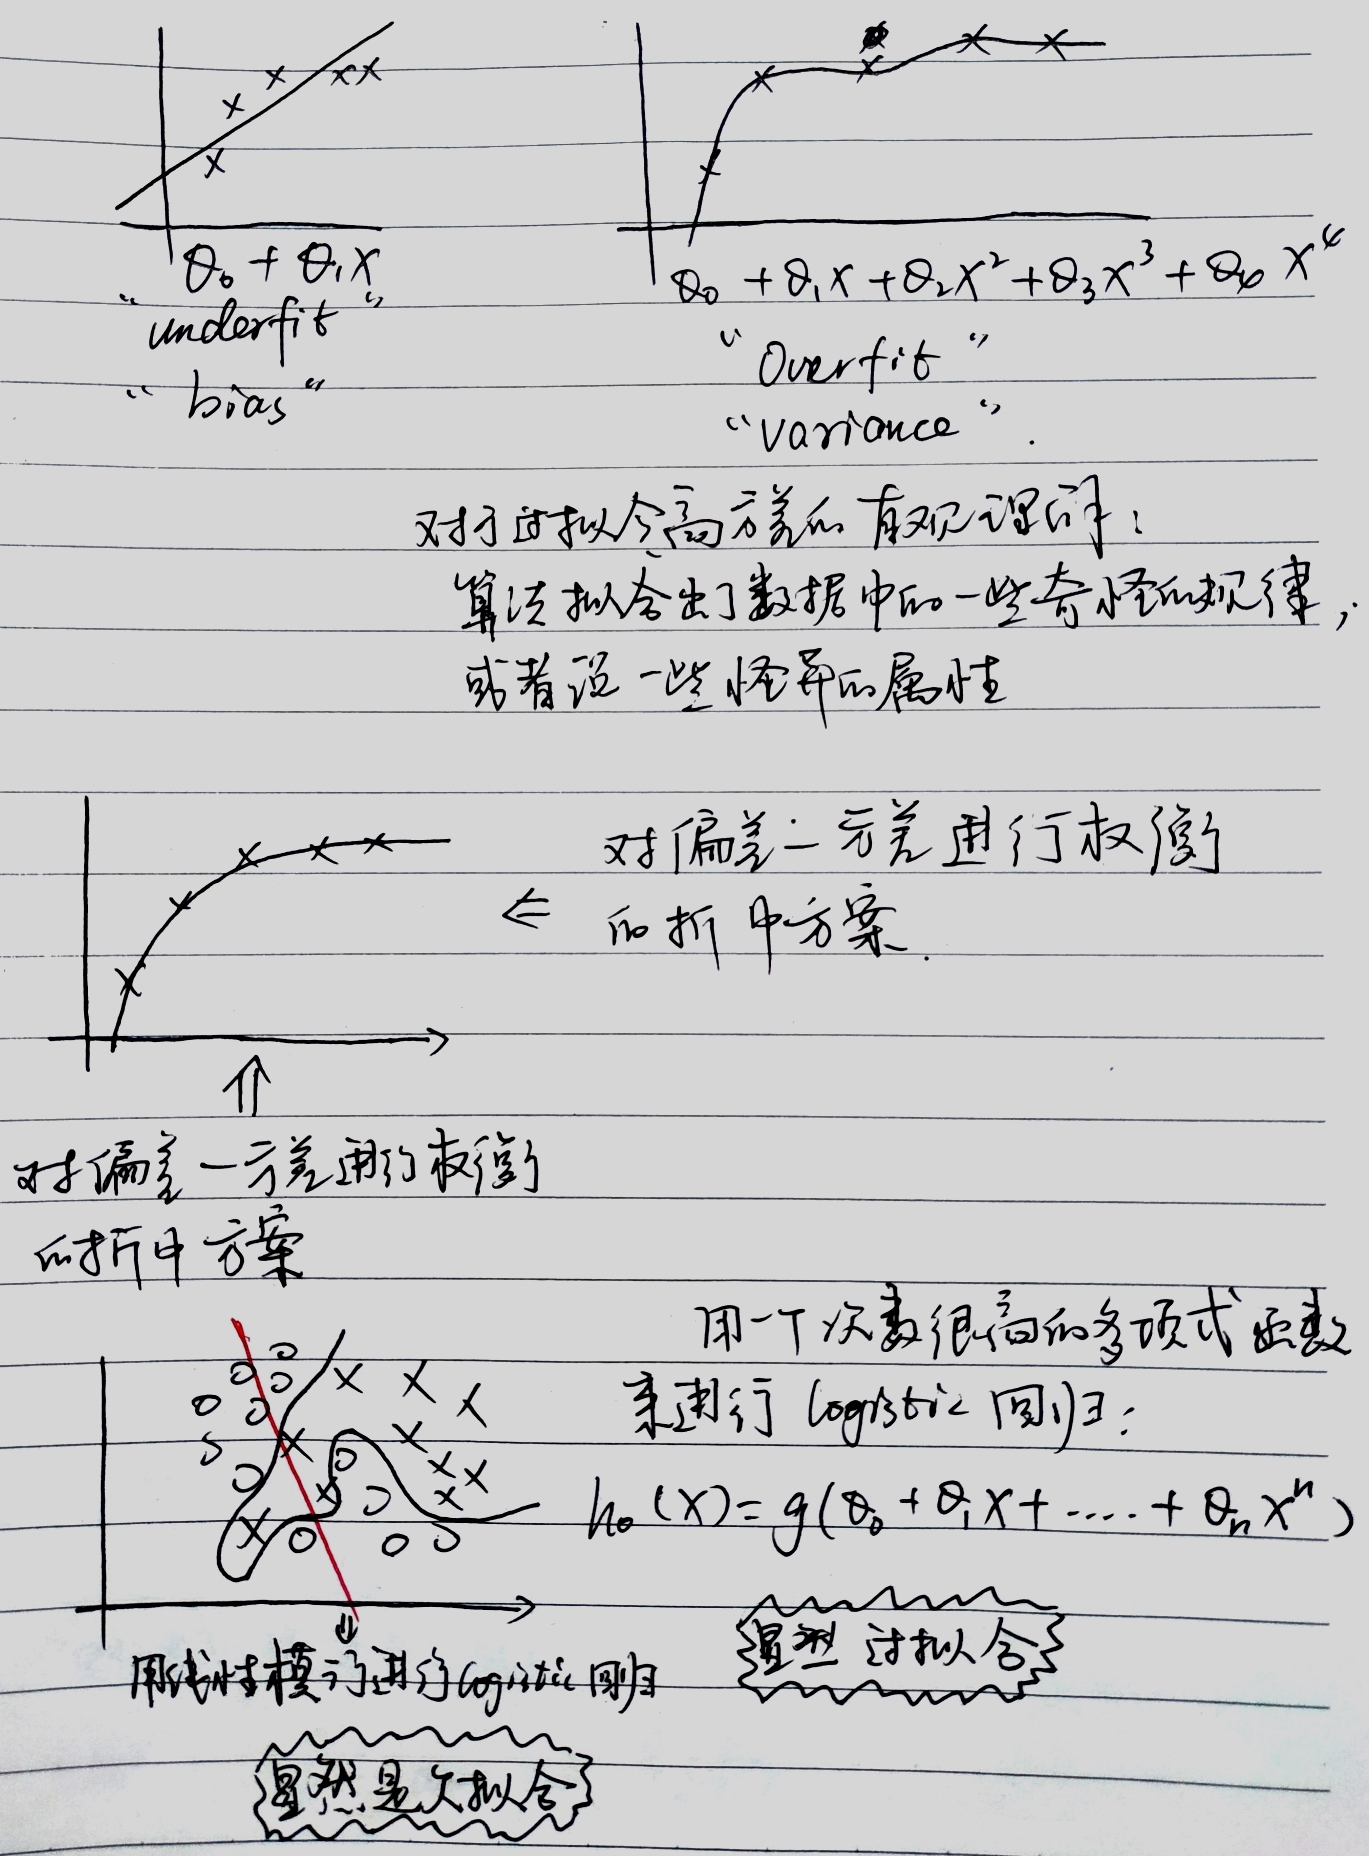 θ₀ + θ₁x
"underfit"
"bias"
θ₀ + θ₁x + θ₂x² + θ₃x³ + θ₄ x⁴
"Overfit"
"variance".
对于过拟合高方差的直观理解:
算法拟合出了数据中的一些奇怪的规律,
或者说一些怪异的属性
对偏差-方差进行权衡
⇐ 的折中方案.
⇑
对偏差-方差进行权衡
的折中方案
用一个次数很高的多项式函数
来进行 logistic 回归:
hθ(x) = g(θ₀ + θ₁x + .... + θₙxⁿ)
显然 过拟合
⇓
用线性模型进行logistic 回归
显然是欠拟合